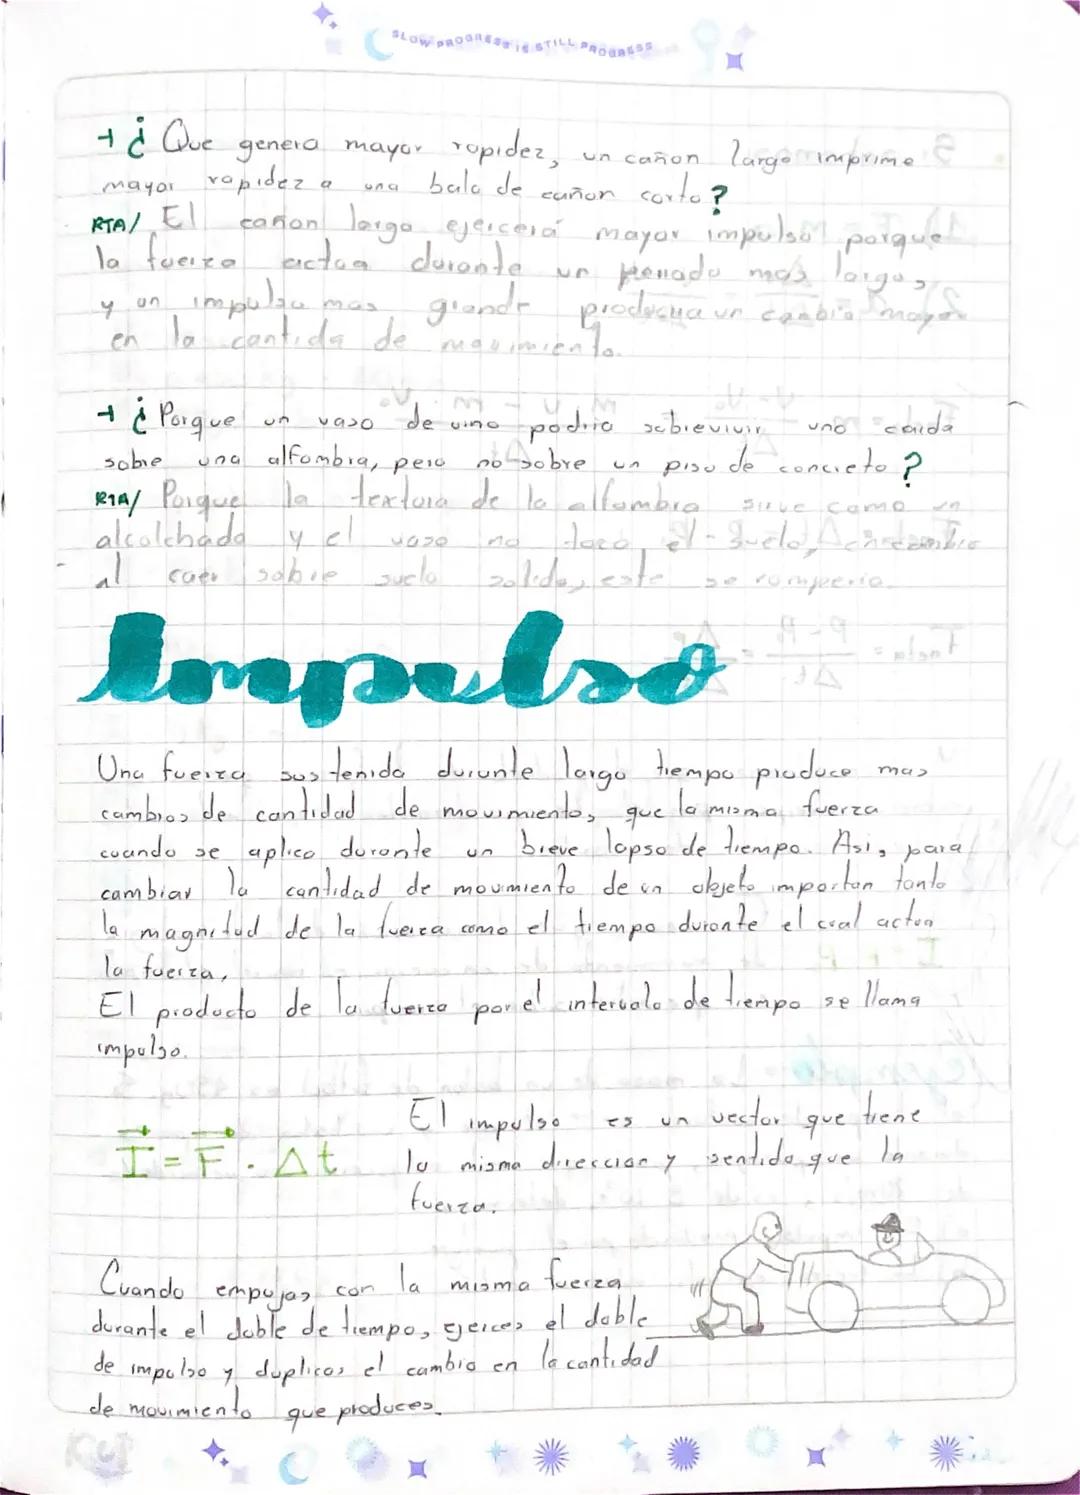 SLOW PROGRESS IS STILL PROGRESS
→ ¿Que genera mayor rapidez, un cañon largo imprime
mayor rapidez a una bala de cañon corto?
RTA/ El cañon largo ejercerá mayor impulso porque
la fuerza actua durante un periodo mas largo,
y un impulso mas grande un cambio mayor
en la cantida de movimiento.
→ ¿Porque un vaso de vino podria sobrevivir una caida
sobre una alfombra, pero no sobre un piso de concreto?
RTA/ Porque la textura de la alfombra sirve como un
alcolchado y el vaso no toca el suelo,
al caer sobre suelo solido, este se romperia.
Impulso
Una fuerza sostenida durante largo tiempo produce mas
cambios de cantidad de movimiento, que la misma fuerza
cuando se aplica durante un breve lapso de tiempo. Asi, para
cambiar la cantidad de movimiento de un objeto importan tanto
la magnitud de la fuerza como el tiempo durante el cual actua
la fuerza,
El producto de la fuerza por el intervalo de tiempo se llama
impulso.
I⃗ = F⃗ . Δt
El impulso es un vector que tiene
la misma direccion y sentido que la
fuerza.
Cuando empujas con la misma fuerza
durante el doble de tiempo, ejerces el doble
de impulso y duplicas el cambio en la cantidad
de movimiento que produces.